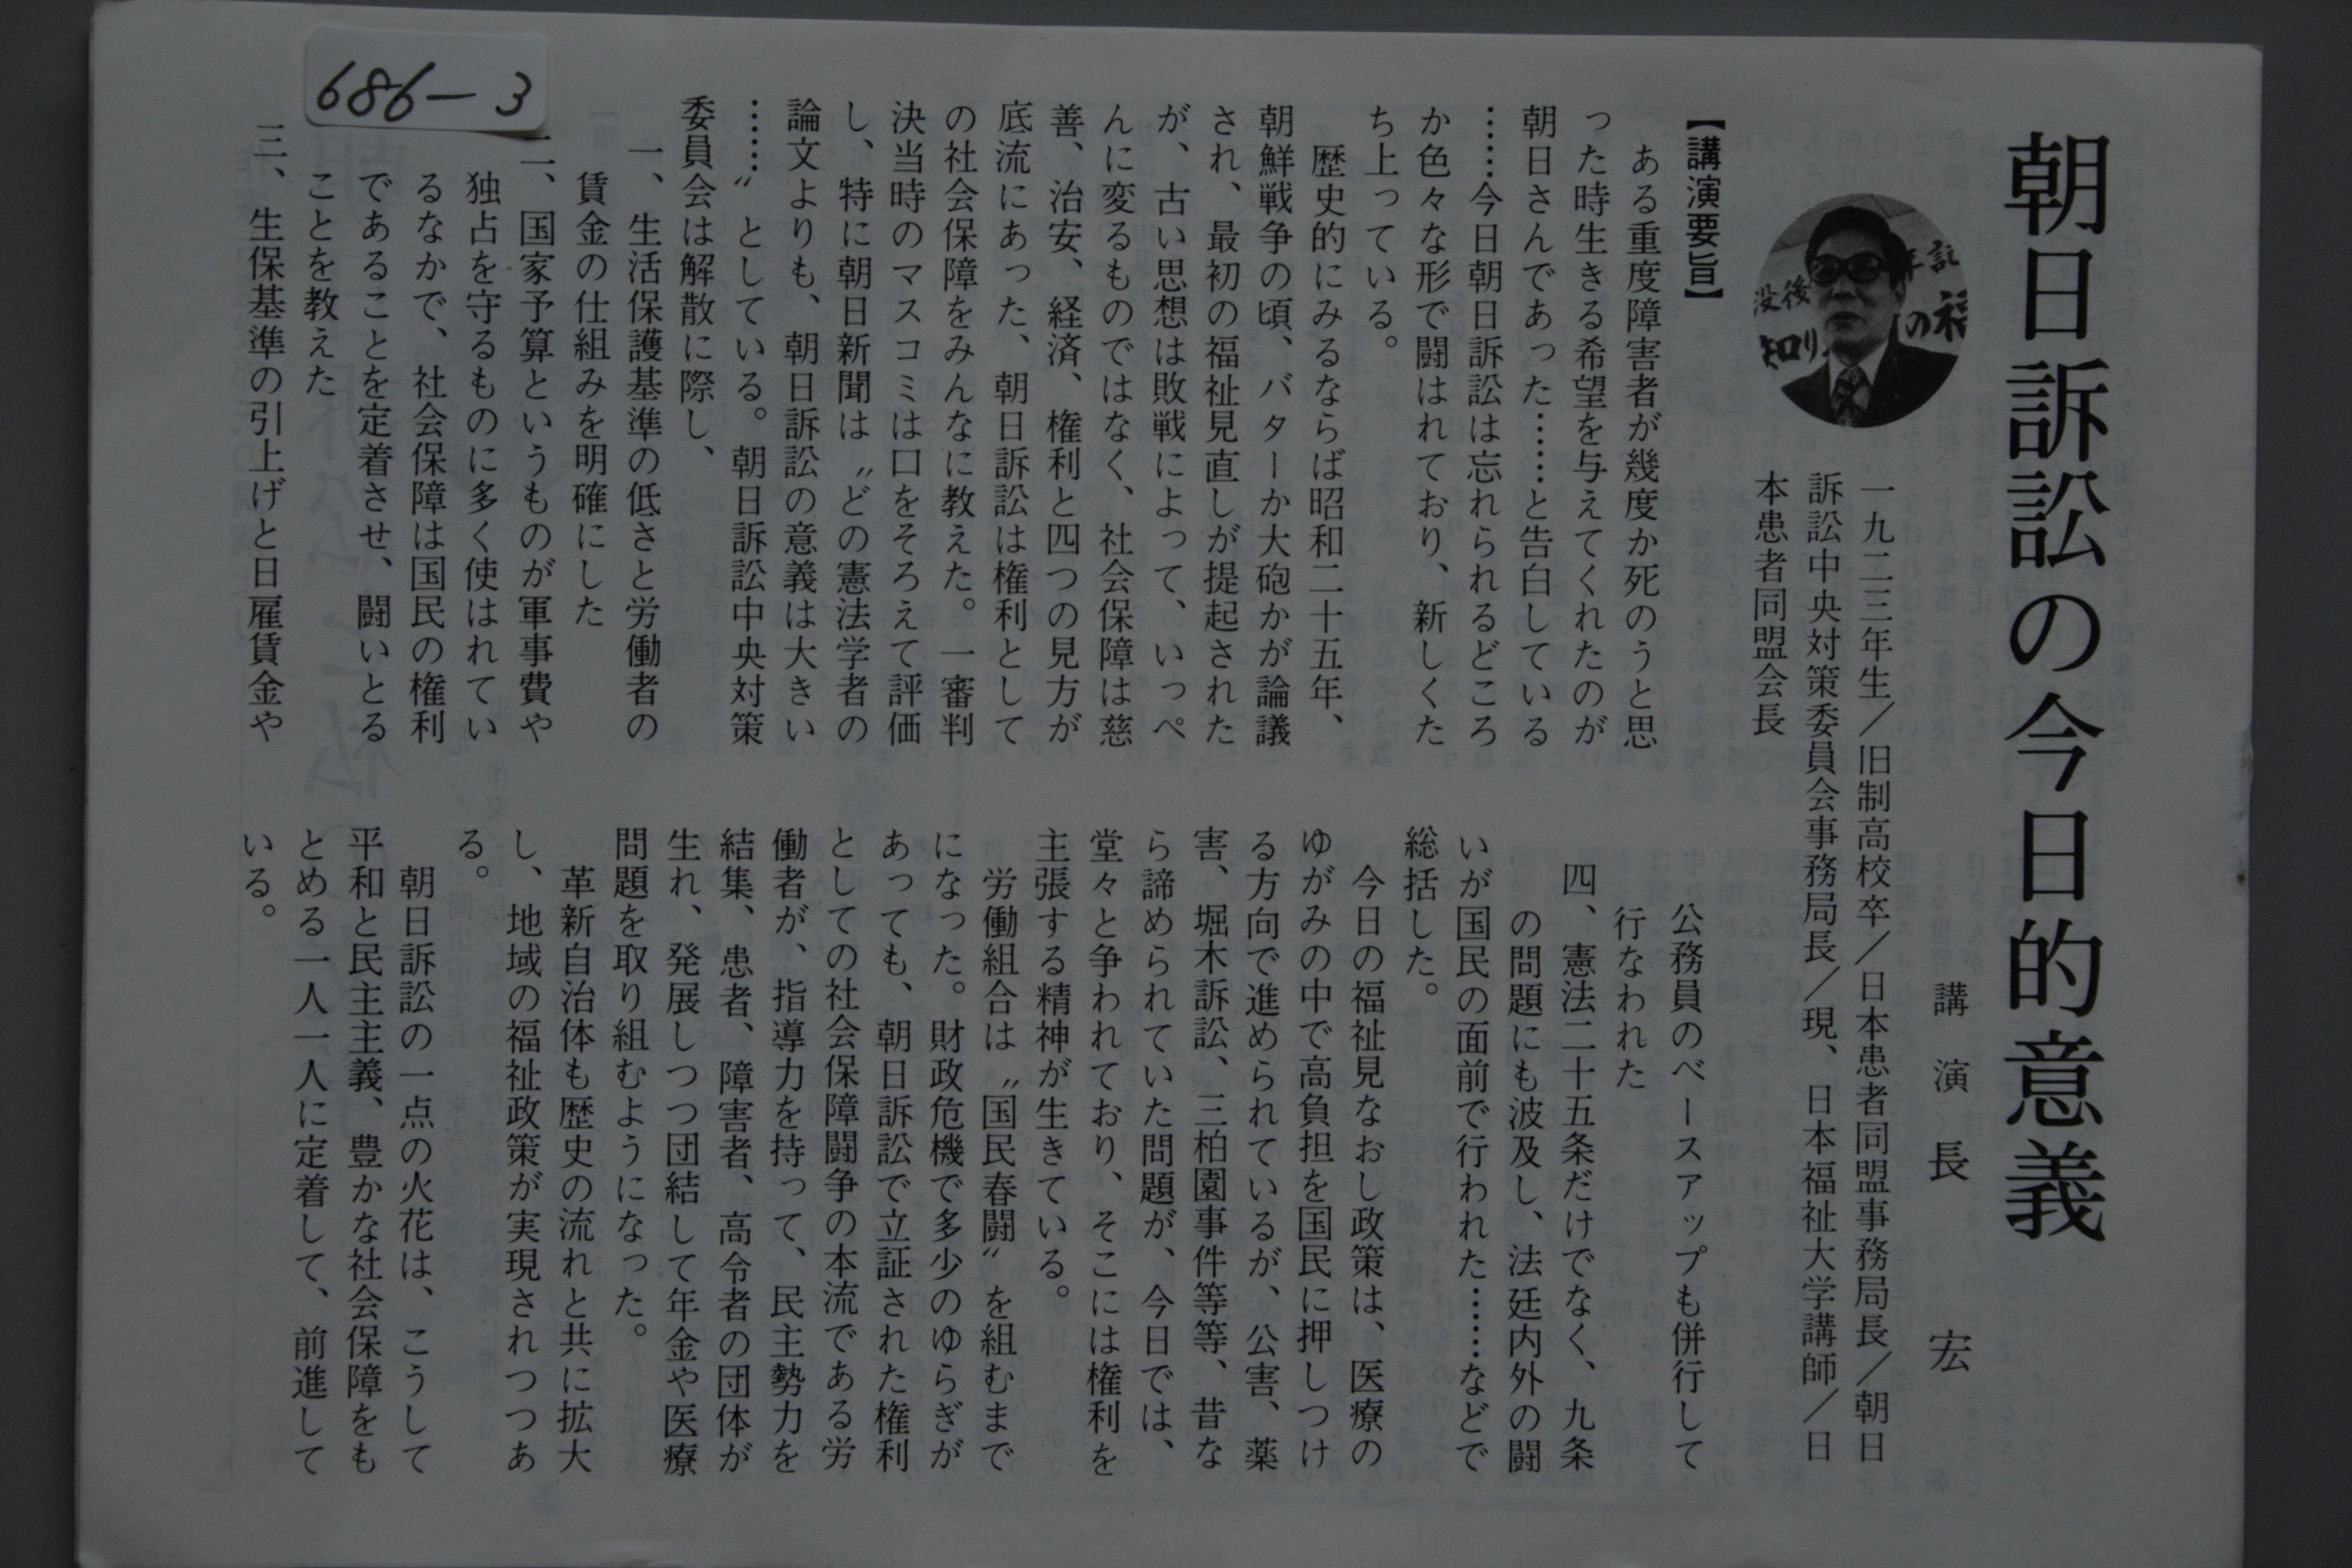 686-3
朝日訴訟の今日的意義
講演 長 宏
一九二三年生／旧制高校卒／日本患者同盟事務局長／朝日
訴訟中央対策委員会事務局長／現、日本福祉大学講師／日
本患者同盟会長
年記
没後
の福
【講演要旨】
ある重度障害者が幾度か死のうと思
った時生きる希望を与えてくれたのが
朝日さんであった……と告白している
……今日朝日訴訟は忘れられるどころ
か色々な形で闘はれており、新しくた
ち上っている。
歴史的にみるならば昭和二十五年、
朝鮮戦争の頃、バターか大砲かが論議
され、最初の福祉見直しが提起された
が、古い思想は敗戦によって、いっぺ
んに変るものではなく、社会保障は慈
善、治安、経済、権利と四つの見方が
底流にあった、朝日訴訟は権利として
の社会保障をみんなに教えた。一審判
決当時のマスコミは口をそろえて評価
し、特に朝日新聞は〝どの憲法学者の
論文よりも、朝日訴訟の意義は大きい
……〟としている。朝日訴訟中央対策
委員会は解散に際し、
一、生活保護基準の低さと労働者の
賃金の仕組みを明確にした
二、国家予算というものが軍事費や
独占を守るものに多く使はれてい
るなかで、社会保障は国民の権利
であることを定着させ、闘いとる
ことを教えた
三、生保基準の引上げと日雇賃金や
公務員のベースアップも併行して
行なわれた
四、憲法二十五条だけでなく、九条
の問題にも波及し、法廷内外の闘
いが国民の面前で行われた……などで
総括した。
今日の福祉見なおし政策は、医療の
ゆがみの中で高負担を国民に押しつけ
る方向で進められているが、公害、薬
害、堀木訴訟、三柏園事件等等、昔な
ら諦められていた問題が、今日では、
堂々と争われており、そこには権利を
主張する精神が生きている。
労働組合は〝国民春闘〟を組むまで
になった。財政危機で多少のゆらぎが
あっても、朝日訴訟で立証された権利
としての社会保障闘争の本流である労
働者が、指導力を持って、民主勢力を
結集、患者、障害者、高令者の団体が
生れ、発展しつつ団結して年金や医療
問題を取り組むようになった。
革新自治体も歴史の流れと共に拡大
し、地域の福祉政策が実現されつつあ
る。
朝日訴訟の一点の火花は、こうして
平和と民主主義、豊かな社会保障をも
とめる一人一人に定着して、前進して
いる。